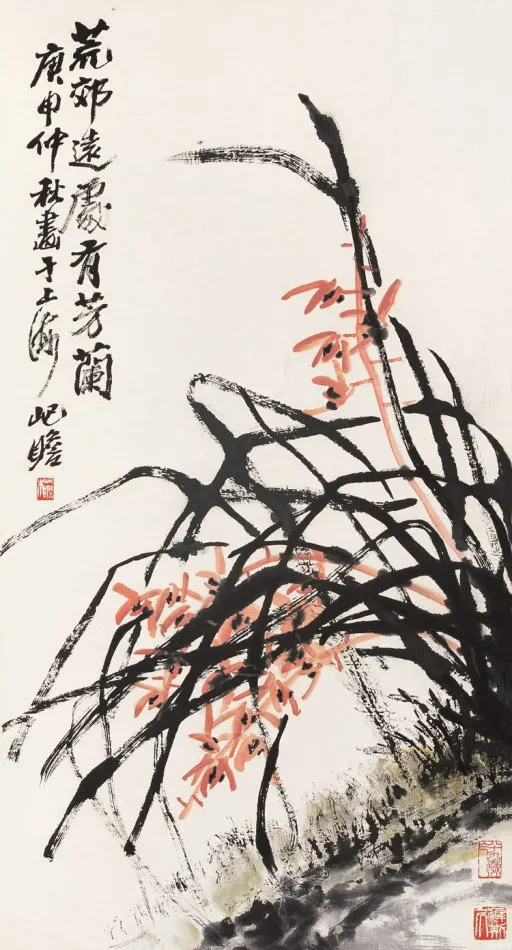 荒郊遠處有芳蘭
庚申仲秋畫于上海 屺瞻